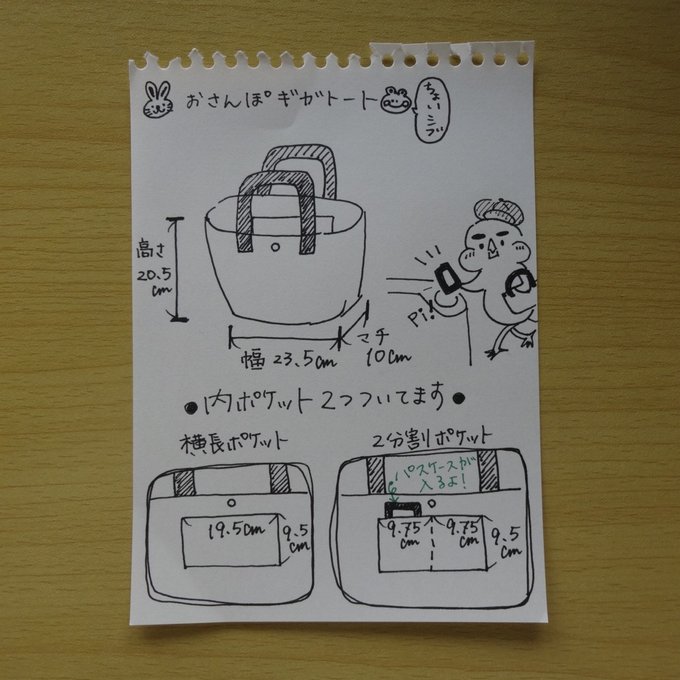 おさんぽギガトート
ちょいシブ
高さ
20.5
cm
Pi!
幅 23.5cm
マチ
10cm
●内ポケット2つついてます●
横長ポケット
19.5cm
9.5
cm
2分割ポケット
パスケースが
入るよ!
9.75
cm
9.75
cm
9.5
cm